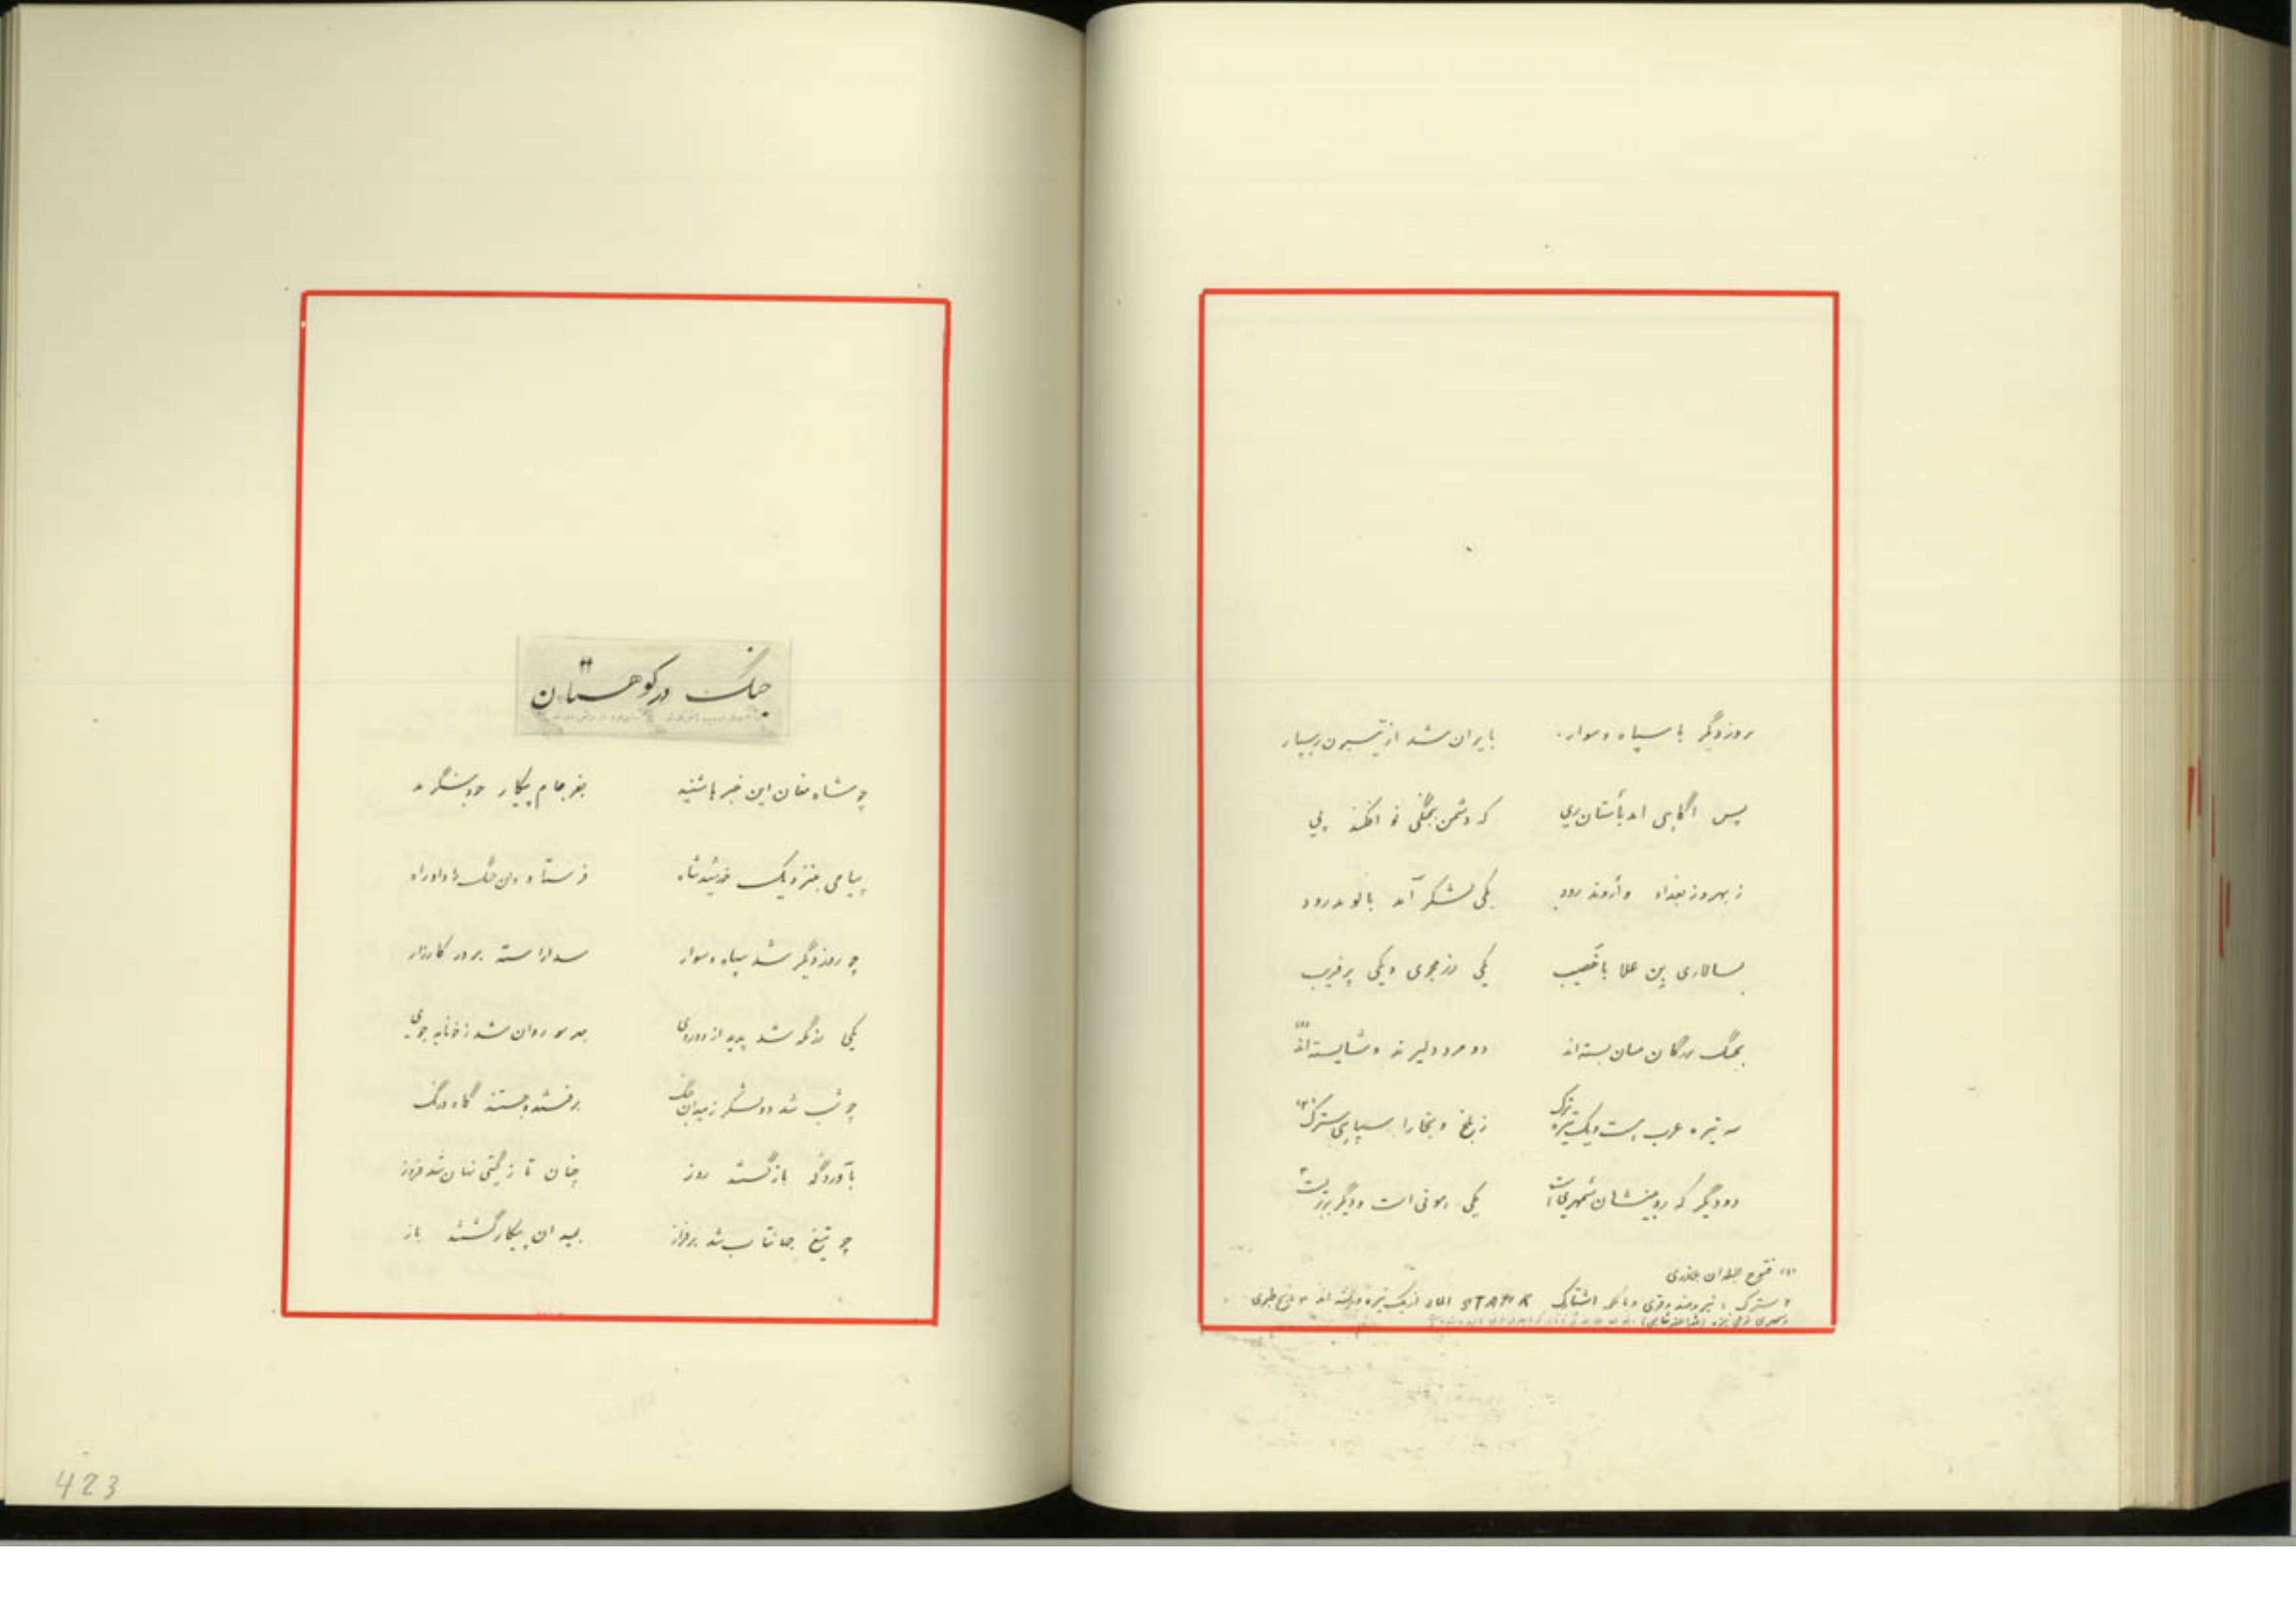 بروز دیگر با سپاه و سوار بایران شد از تیسبون رهسپار
پس آگاهی آمد بأستان ری که دشمن بجنگی نو افکند پی
ز بهروز بغداد و أروند رود یکی لشکر آمد بالوند رود
بسالاری بن علا با خصیب یکی رزمجوی و یکی پر فریب
بجنگ بزرگان میان بسته‌اند دو مرد دلیرند و شایسته‌اند (۱)
سه تیره عرب هست و یک تیره ترک ز بلخ و بخارا سپاهی سترک (۲)
دو دیگر که رومیشان شهری است یکی است و دیگر
(۱) فتوح البلدان بلاذری
۲ سترک : نیرومند و قوی STARK
جنگ در کوهستان
چو شاه مغان این خبرها شنید بفرجام پیکار خود بنگرید
پیامی بنزدیک خورشید شاه فرستاد و
چو روز دیگر شد سپاه و سوار بیاراسته بر در کارزار
یکی رزمگه شد پدید از دو روی بهر سو روان شد ز خونابه جوی
چو شب شد دو لشکر ز میدان جنگ برفتند و جستند گاه درنگ
بآوردگه بازگشتند روز چنان تا ز گیتی نهان شد فروز
چو تیغ جهانتاب شد برفراز بمیدان پیکار گشتند باز
423